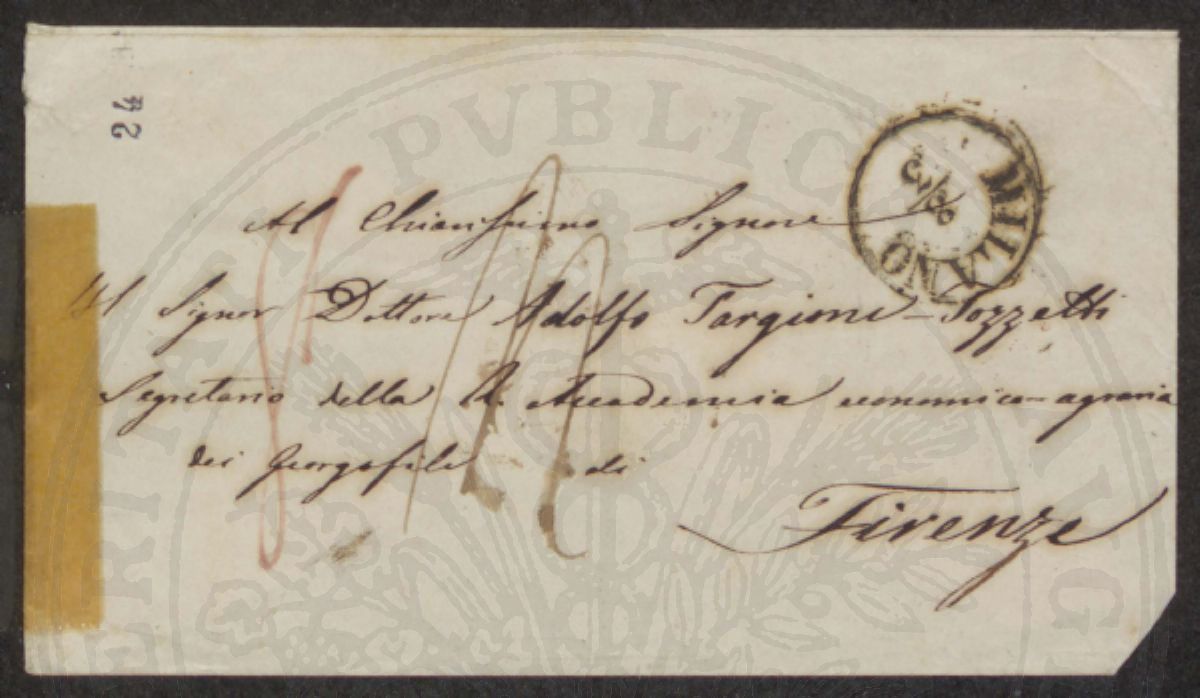 24
MILANO
Al Chiarissimo Signore
Il Signor Dottore Adolfo Targioni-Tozzetti
Segretario della R. Accademia economico-agraria
dei Georgofili di
Firenze
PVBLIC